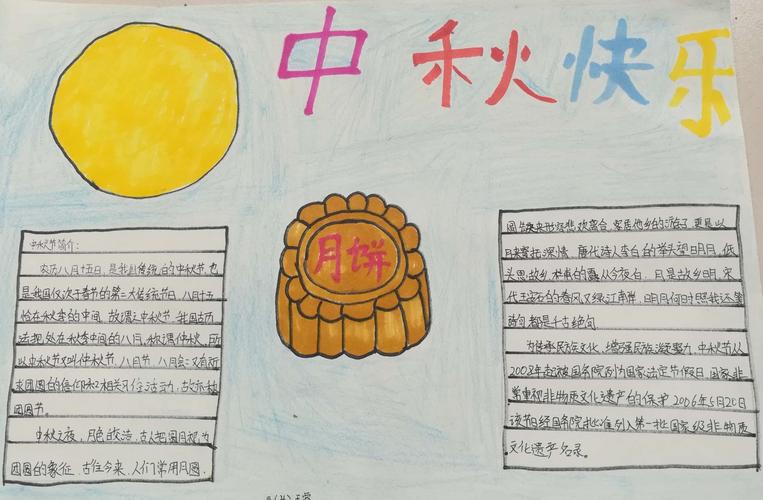 中秋快乐
月饼
中秋节简介:
农历八月十五日,是我国传统的中秋节,也
是我国仅次于春节的第二大传统节日,八月十五
恰在秋季的中间,故谓之中秋节,我国古历
法把处在秋季中间的八月,称谓仲秋,所
以中秋节又叫仲秋节,八月节、八月会;又有祈
求团圆的信仰和相关习俗活动,故亦称
团圆节。
中秋之夜,月色皎洁,古人把圆月视为
团圆的象征,古往今来,人们常用月圆,
月缺来形容悲欢离合,客居他乡的游子,更是以
月来寄托深情,唐代诗人李白的举头望明月,低
头思故乡,杜甫的露从今夜白,月是故乡明,宋
代王安石的春风又绿江南岸,明月何时照我还等
诗句,都是千古绝句
为传承民族文化,增强民族凝聚力,中秋节从
2008年起被国务院列为国家法定节假日,国家非
常重视非物质文化遗产的保护,2006年5月20日
该节日经国务院批准列入第一批国家级非物质
文化遗产名录。